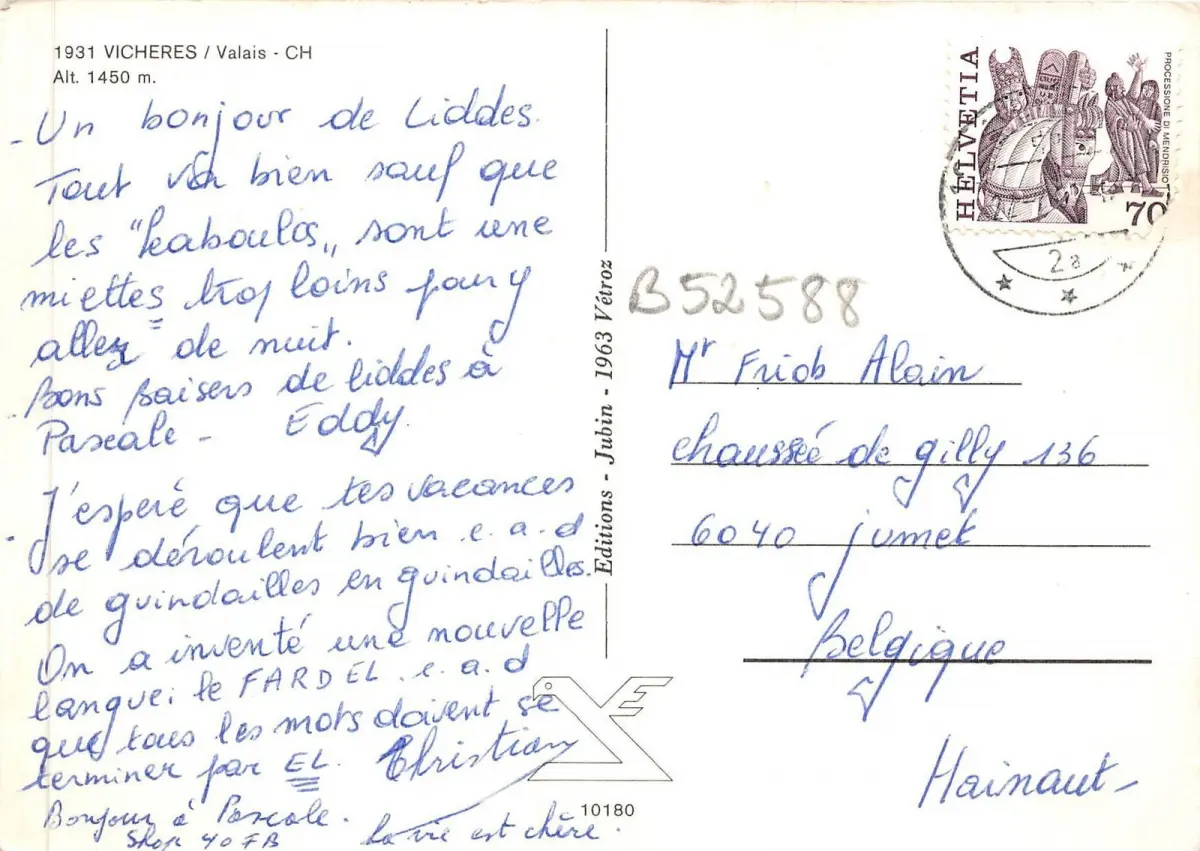 1931 VICHERES / Valais - CH
Alt. 1450 m.
- Un bonjour de Liddes.
Tout va bien sauf que
les "kaboulos" sont une
miettes trop loins pour y
allez de nuit.
Bons baisers de liddes à
Pascale - Eddy.
- J'esperé que tes vacances
se déroulent bien c.a.d
de guindailles en guindailles.
On a inventé une nouvelle
langue: le FARDEL. c.a.d
que tous les mots doivent se
terminer par EL. Christian
Bonjour à Pascale.
40 FB
La vie est chère.
10180
Editions - Jubin - 1963 Vétroz
HELVETIA
PROCESSIONE DI MENDRISIO
70
2a
B52588
Mr Friob Alain
chaussée de gilly 136
6040 jumet
Belgique
Hainaut -